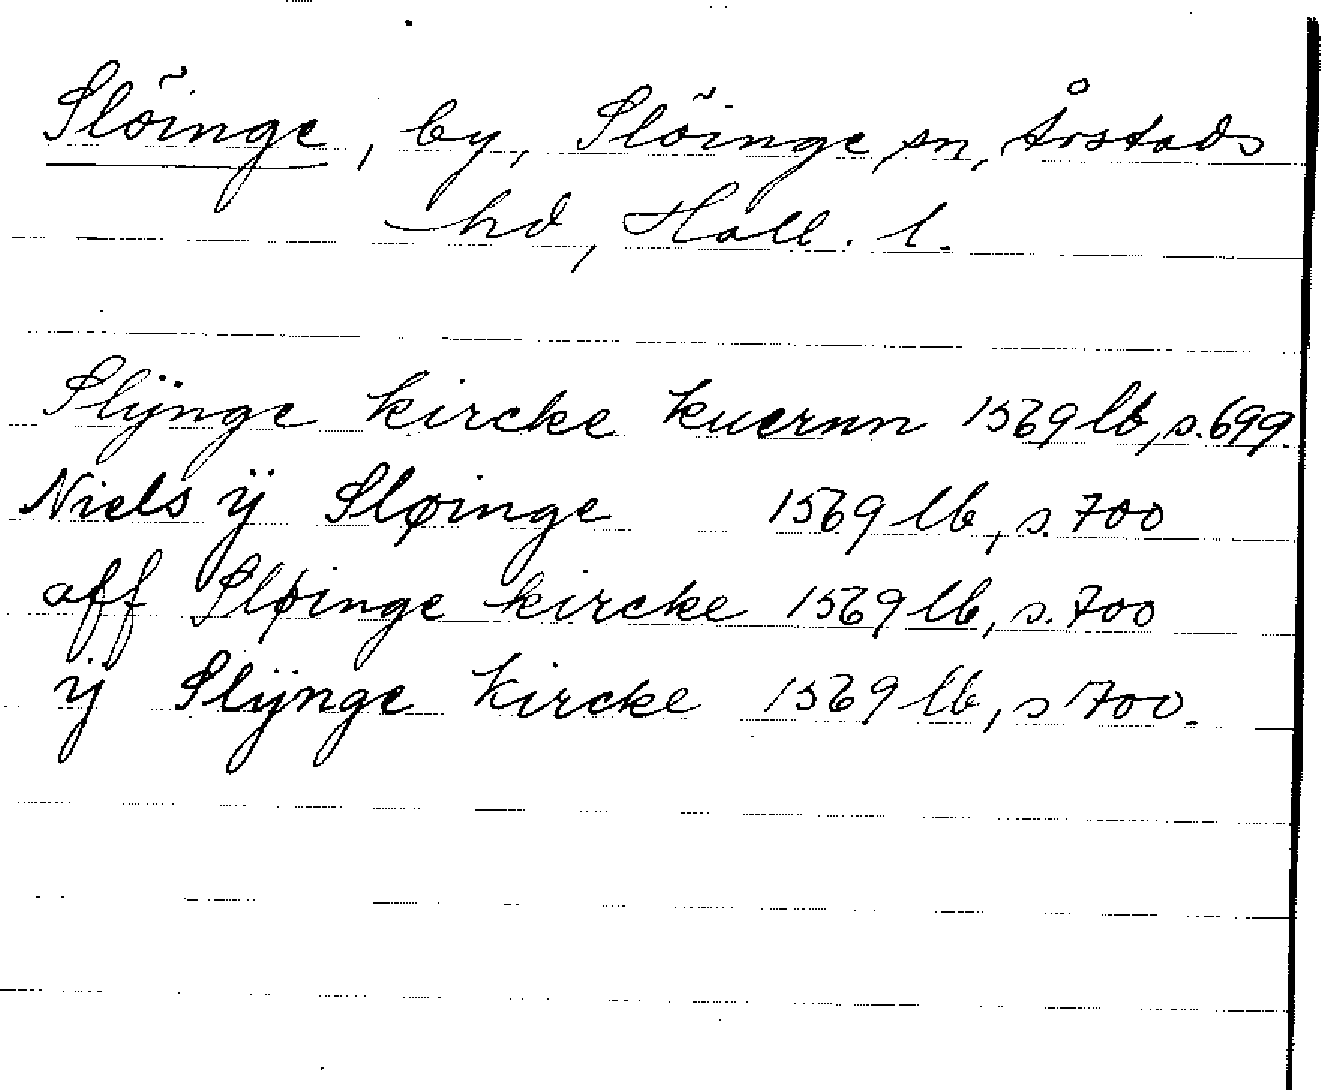 Slöinge, by, Slöinge sn, Årstads
hd, Hall. l.
Slÿnge kircke kuernn 1569 lb, s. 699.
Niels ÿ Sløinge 1569 lb, s. 700
aff Sløinge kircke 1569 lb, s. 700
ÿ Slÿnge kircke 1569 lb, s 700.